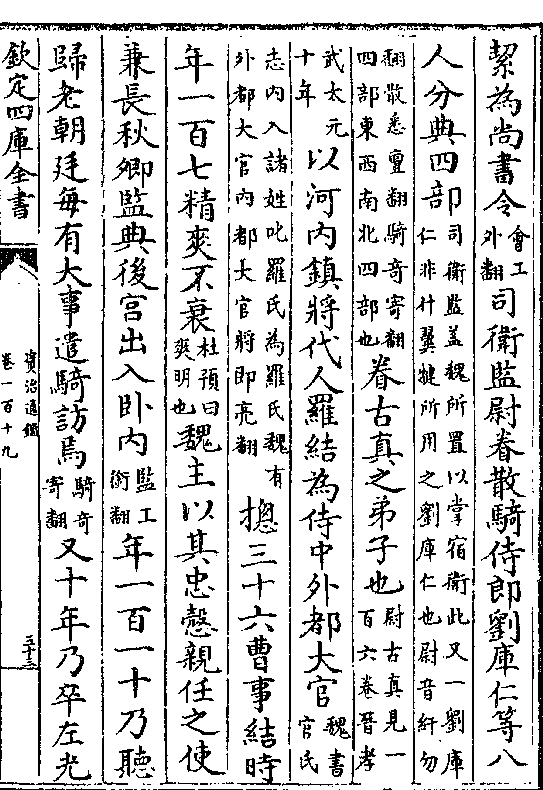 絜為尚書令會工外翻司衛監尉眷散騎侍郎劉庫仁等八
人分典四部司衛監蓋魏所置以掌宿衛此又一劉庫仁非什翼犍所用之劉庫仁也尉音紆勿
翻散悉亶翻騎奇寄翻四部東西南北四部也眷古真之弟子也尉古真見一百六卷晉孝
武太元十年以河内鎮將代人羅結為侍中外都大官魏書官氏
志内入諸姓叱羅氏為羅氏魏有外都大官内都大官將即亮翻摠三十六曹事結時
年一百七精爽不衰杜預曰爽明也魏主以其忠慤親任之使
兼長秋卿監典後宫出入卧内監工銜翻年一百一十乃聽
歸老朝廷每有大事遣騎訪焉騎奇寄翻又十年乃卒左光
欽定四庫全書
資治通鑑
卷一百十九
三十三